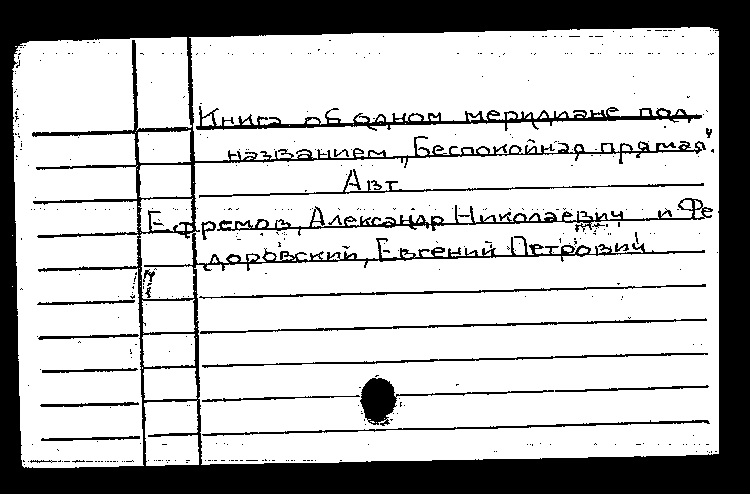 Книга об одном меридиане под
названием „Беспокойная прямая“.
Авт.
Ефремов, Александр Николаевич и Фе
доровский, Евгений Петрович